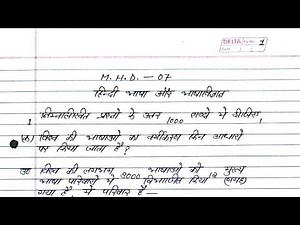 DELTA Page 1
M.H.D. – 07
हिन्दी भाषा और भाषाविज्ञान
1 निम्नलिखित प्रश्नों के उत्तर 1000 शब्दों में दीजिए,
(क) विश्व की भाषाओं का वर्गीकरण किन आधारों
पर किया जाता है?
उ० विश्व की लगभग 3000 भाषाओं को मुख्य
भाषा परिवारों में विभाजित किया 12 (बारह)
गया है, ये परिवार है—